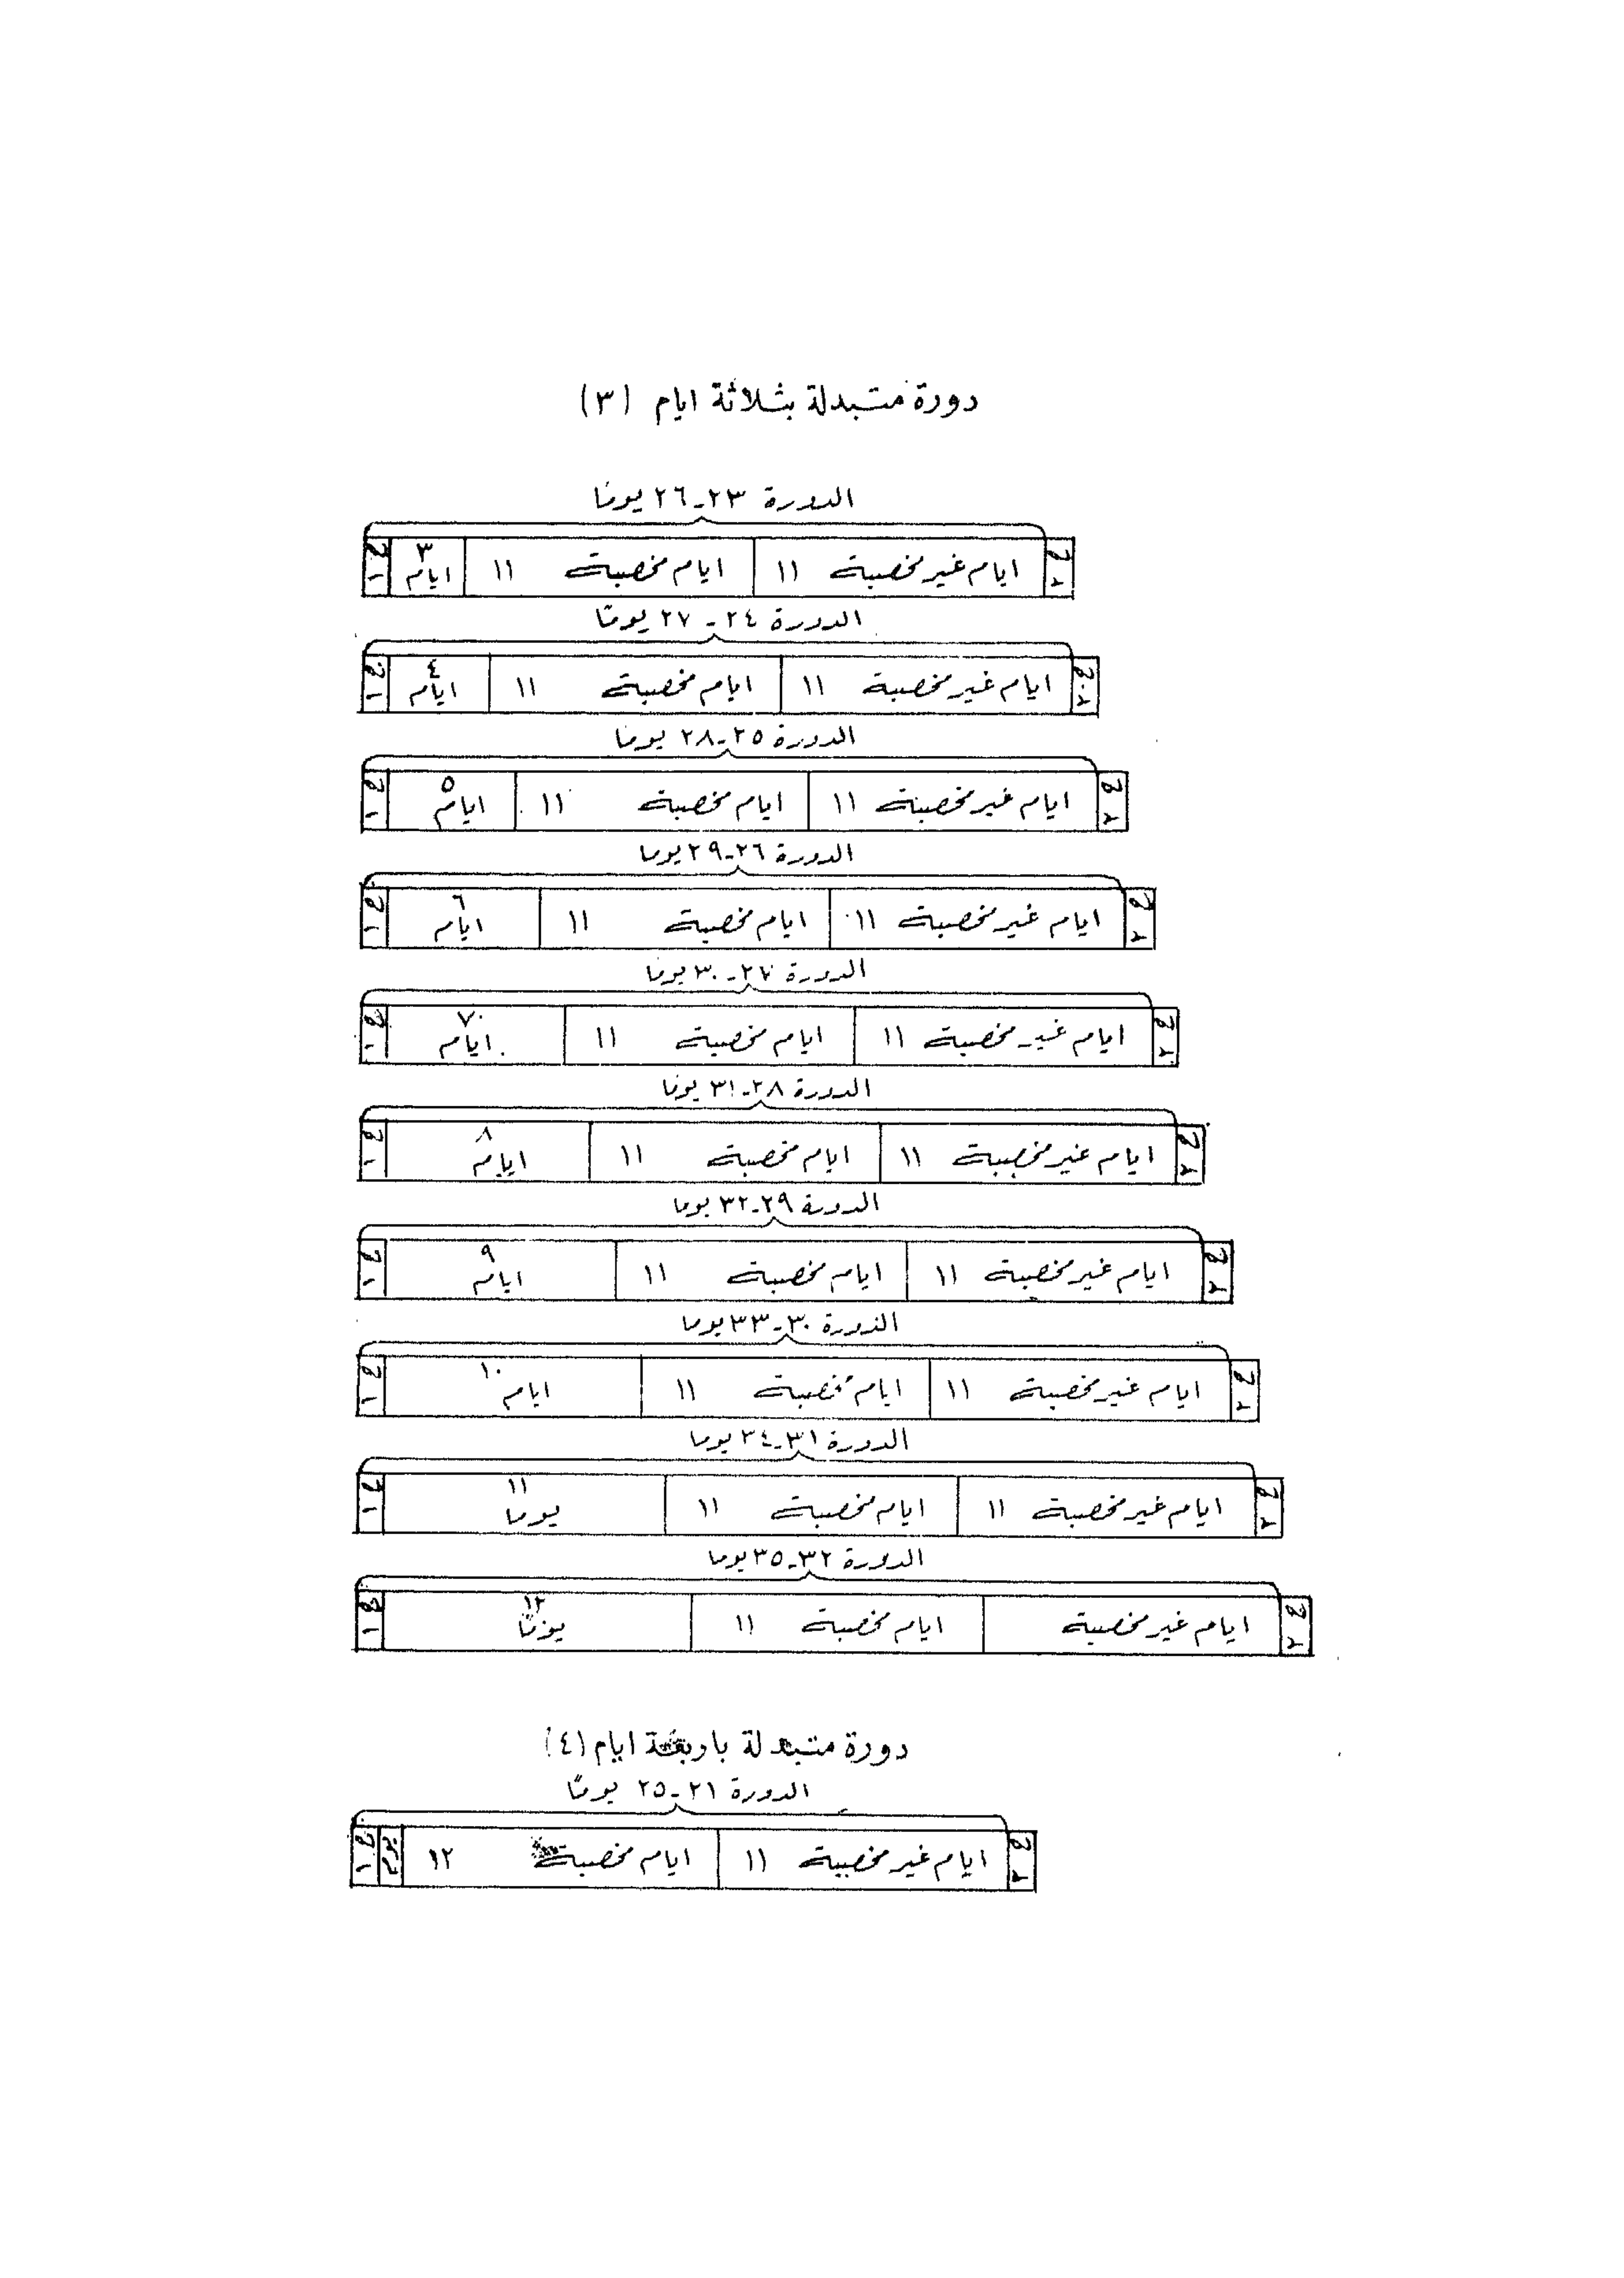 دورة متبدلة بثلاثة ايام (٣)
الدورة ٢٣-٢٦ يومًا
ح ٢ ايام غير مخصبة ١١ ايام مخصبة ١١ ٣ ايام ح ١
الدورة ٢٤-٢٧ يومًا
ح ٢ ايام غير مخصبة ١١ ايام مخصبة ١١ ٤ ايام ح ١
الدورة ٢٥-٢٨ يومًا
ح ٢ ايام غير مخصبة ١١ ايام مخصبة ١١ ٥ ايام ح ١
الدورة ٢٦-٢٩ يوما
ح ٢ ايام غير مخصبة ١١ ايام مخصبة ١١ ٦ ايام ح ١
الدورة ٢٧-٣٠ يومًا
ح ٢ ايام غير مخصبة ١١ ايام مخصبة ١١ ٧ ايام ح ١
الدورة ٢٨-٣١ يومًا
ح ٢ ايام غير مخصبة ١١ ايام مخصبة ١١ ٨ ايام ح ١
الدورة ٢٩-٣٢ يوما
ح ٢ ايام غير مخصبة ١١ ايام مخصبة ١١ ٩ ايام ح ١
الدورة ٣٠-٣٣ يوما
ح ٢ ايام غير مخصبة ١١ ايام مخصبة ١١ ١٠ ايام ح ١
الدورة ٣١-٣٤ يوما
ح ٢ ايام غير مخصبة ١١ ايام مخصبة ١١ ١١ يوما ح ١
الدورة ٣٢-٣٥ يوما
ح ٢ ايام غير مخصبة ايام مخصبة ١١ ١٢ يومًا ح ١
دورة متبدلة باربعة ايام (٤)
الدورة ٢١-٢٥ يومًا
ح ٢ ايام غير مخصبة ١١ ايام مخصبة ١٢ يوم ح ١